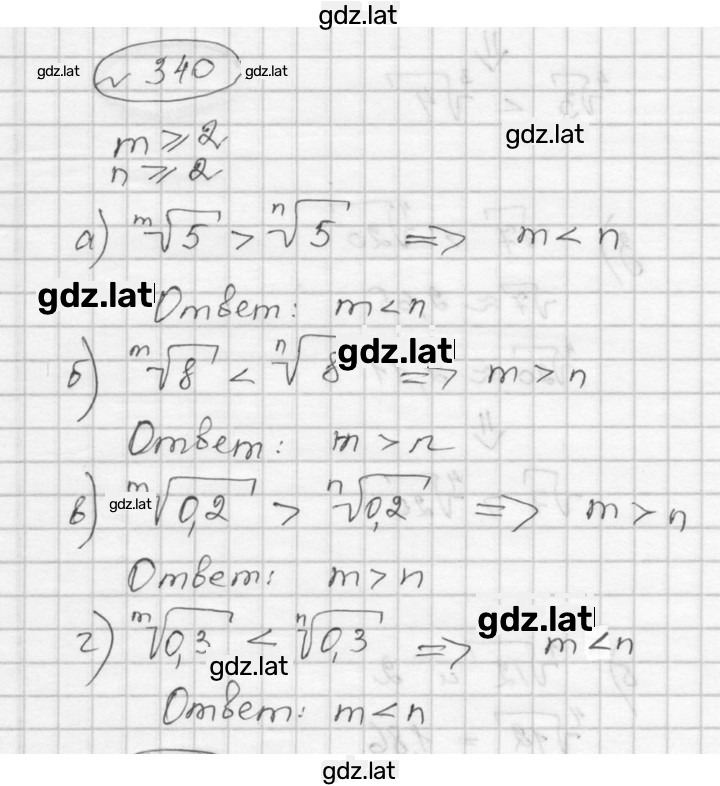 gdz.lat
gdz.lat √ 340 gdz.lat
m ⩾ 2
gdz.lat
n ⩾ 2
а) ᵐ√5 > ⁿ√5 => m < n
gdz.lat Ответ: m < n
б) ᵐ√8 < ⁿ√8 gdz.lat => m > n
Ответ: m > n
в) gdz.lat ᵐ√0,2 > ⁿ√0,2 => m > n
Ответ: m > n
gdz.lat
г) ᵐ√0,3 < ⁿ√0,3 => m < n
gdz.lat
Ответ: m < n
gdz.lat